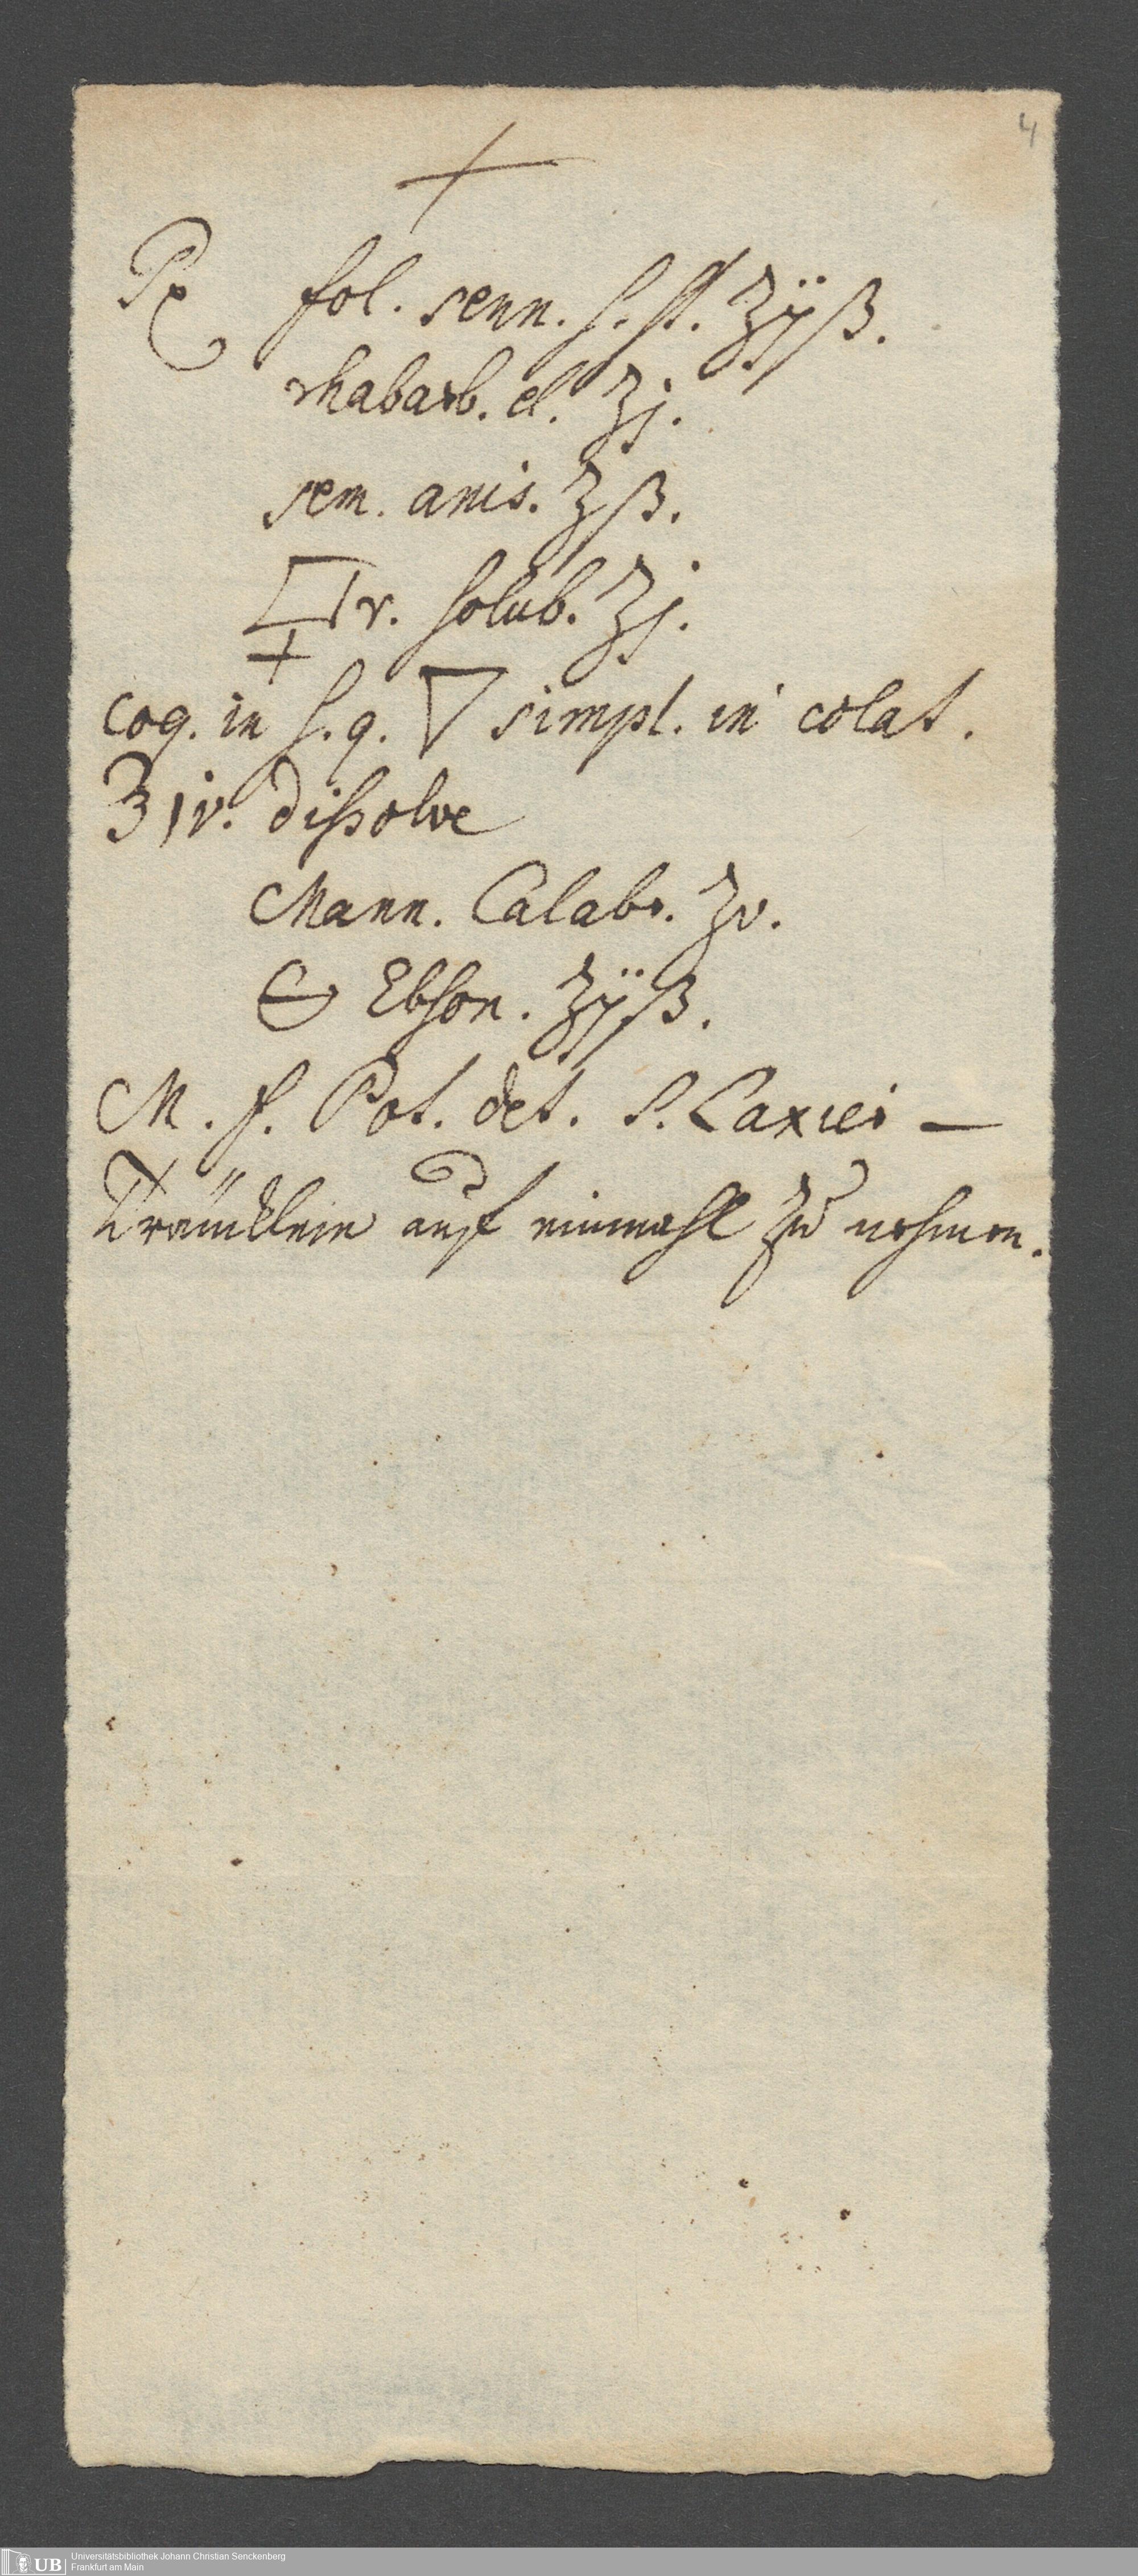 4
℞ fol. senn. s. st. ʒijß.
rhabarb. el. ʒj.
sem. anis. ʒß.
🜿r. solub. ʒj.
coq. in s. q. ▽ simpl. in colat.
℥iv. dissolve
Mann. Calabr. ʒv.
🜔 Ebson. ʒijß.
M. f. Pot. det. S. Laxier-
Tränklein auf einmahl zu nehmen.
UB Universitätsbibliothek Johann Christian Senckenberg
Frankfurt am Main